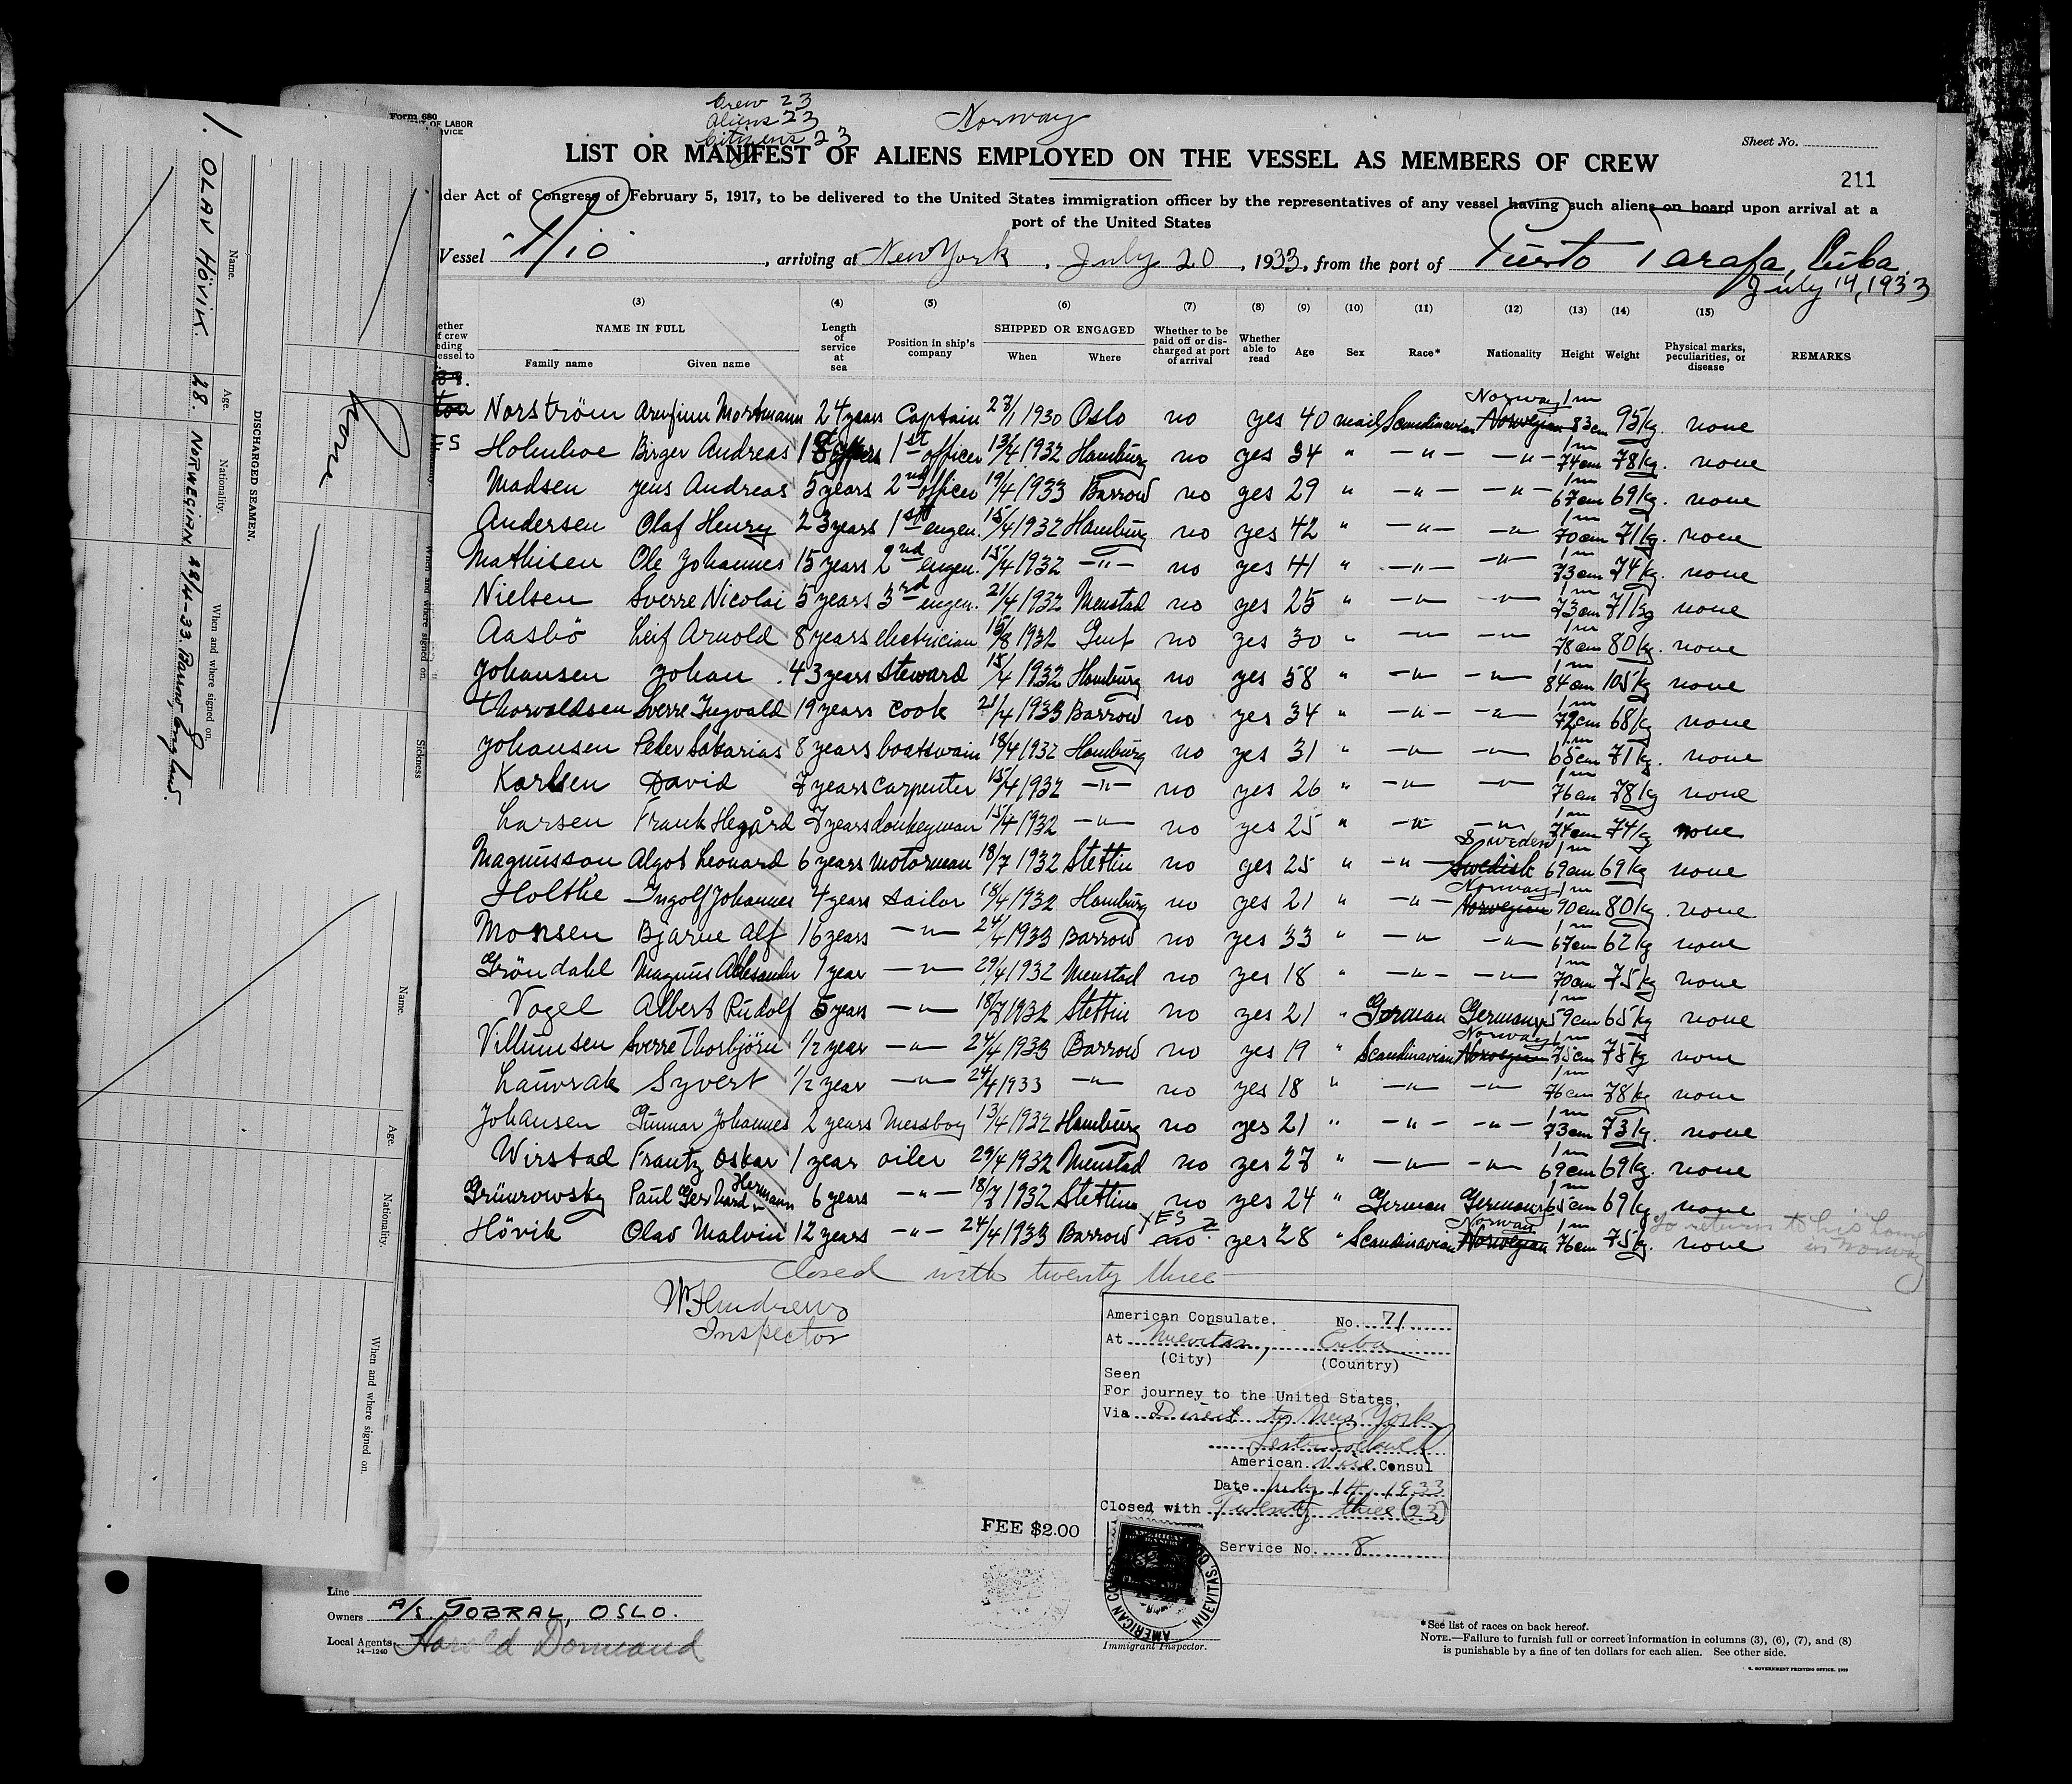 Form 680
OF LABOR
Crew 23
aliens 23
Citizens 23
Norway
Sheet No.
LIST OR MANIFEST OF ALIENS EMPLOYED ON THE VESSEL AS MEMBERS OF CREW
211
Act of Congress of February 5, 1917, to be delivered to the United States immigration officer by the representatives of any vessel having such aliens on board upon arrival at a
port of the United States
Vessel "Rio", arriving at New York, July 20, 1933, from the port of Puerto Tarafa, Cuba.
July 14, 1933
(3) (4) (5) (6) (7) (8) (9) (10) (11) (12) (13) (14) (15)
NAME IN FULL
Family name Given name
Length of service at sea
Position in ship's company
SHIPPED OR ENGAGED
When Where
Whether to be paid off or discharged at port of arrival
Whether able to read
Age Sex Race* Nationality Height Weight
Physical marks, peculiarities, or disease
REMARKS
Norström Arnfinn Mortmann 24 years Captain 27/1 1930 Oslo no yes 40 mail Scandinavian Norwegian Norway 1 m 83 cm 95 kg. none
Holmboe Birger Andreas 1st officer 13/4 1932 Hamburg no yes 34 " —"— —"— 1 m 74 cm 78 kg. none
Madsen Yens Andreas 5 years 2nd officer 19/4 1933 Barrow no yes 29 " —"— —"— 1 m 67 cm 69 kg. none
Andersen Olaf Henry 23 years 1st engen. 15/4 1932 Hamburg no yes 42 " —"— —"— 1 m 70 cm 71 kg. none
Mathisen Ole Johannes 15 years 2nd engen. 15/4 1932 —"— no yes 41 " —"— —"— 1 m 73 cm 74 kg. none
Nielsen Sverre Nicolai 5 years 3rd engen. 21/4 1932 Menstad no yes 25 " —"— —"— 1 m 73 cm 71 kg none
Aasbö Leif Arnold 8 years electrician 15/8 1932 Gent no yes 30 " —"— —"— 1 m 78 cm 80 kg. none
Johansen Johan 43 years Steward 15/4 1932 Hamburg no yes 58 " —"— —"— 1 m 84 cm 105 kg none
Thorvaldsen Sverre Ingvald 19 years cook 21/4 1933 Barrow no yes 34 " —"— —"— 1 m 72 cm 68 kg none
Johansen Peder Sakarias 8 years boatswain 18/4 1932 Hamburg no yes 31 " —"— —"— 1 m 65 cm 71 kg. none
Karlsen David 7 years carpenter 15/4 1932 —"— no yes 26 " —"— —"— 1 m 76 cm 78 kg none
Larsen Frank Hegård 7 years donkeyman 15/4 1932 —"— no yes 25 " —"— —"— 1 m 74 cm 74 kg none
Magnusson Algot Leonard 6 years Motorman 18/7 1932 Stettin no yes 25 " —"— Swedish Sweden 1 m 69 cm 69 kg none
Holthe Ingolf Johannes 4 years sailor 18/4 1932 Hamburg no yes 21 " —"— Norwegian Norway 1 m 90 cm 80 kg. none
Monsen Bjarne Alf 16 years —"— 24/4 1933 Barrow no yes 33 " —"— —"— 1 m 67 cm 62 kg none
Gröndahl Magnus Aleksander 1 year —"— 29/4 1932 Menstad no yes 18 " —"— —"— 1 m 70 cm 75 kg none
Vogel Albert Rudolf 5 years —"— 18/7 1932 Stettin no yes 21 " German Germany 1 m 59 cm 65 kg none
Villumsen Sverre Thorbjörn 1/2 year —"— 24/4 1933 Barrow no yes 19 " Scandinavian Norwegian Norway 1 m 75 cm 75 kg none
Lauvrak Syvert 1/2 year —"— 24/4 1933 —"— no yes 18 " —"— —"— 1 m 76 cm 78 kg none
Johansen Gunnar Johannes 2 years Messboy 13/4 1932 Hamburg no yes 21 " —"— —"— 1 m 73 cm 73 kg. none
Wirstad Frantz Oskar 1 year oiler 29/4 1932 Menstad no yes 27 " —"— —"— 1 m 69 cm 69 kg. none
Grünrowsky Paul Gerhard Hermann 6 years —"— 18/7 1932 Stettin no yes 24 " German Germany 1 m 65 cm 69 kg none
Hövik Olav Malvin 12 years —"— 24/4 1933 Barrow no YES yes 28 " Scandinavian Norwegian Norway 1 m 76 cm 75 kg. none To return to his home in Norway
Closed with twenty three
W Andrews
Inspector
American Consulate. No. 71
At Nuevitas, Cuba
(City) (Country)
Seen
For journey to the United States,
Via Direct to New York
American Vice Consul
Date July 14, 1933
Closed with Twenty three (23)
FEE $2.00
Service No. 8
Immigrant Inspector.
Line
Owners A/S. SOBRAL, OSLO.
Local Agents Harold Dormand
14—1240
*See list of races on back hereof.
NOTE.—Failure to furnish full or correct information in columns (3), (6), (7), and (8)
is punishable by a fine of ten dollars for each alien. See other side.
DISCHARGED SEAMEN.
Name. Age. Nationality. When and where signed on.
1. OLAV HÖVIK 28. NORWEGIAN 28/4-33. Barrow, England.
None
Sickness
Name. Age. Nationality. When and where signed on.